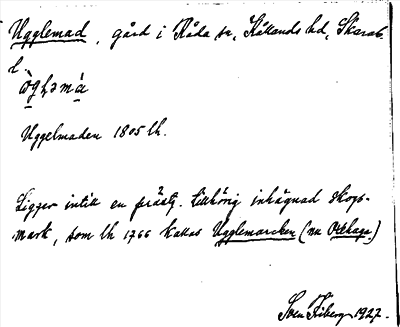 Ugglemad, gård i Råda sn, Kållands hd, Skarab.
l.
Uggelmaden 1805 lh.
Ligger intill en prästg. tillhörig inhägnad skogs-
mark, som lh 1766 kallas Ugglemarcken (nu Oxhaga.)
Sven Friberg 1927.